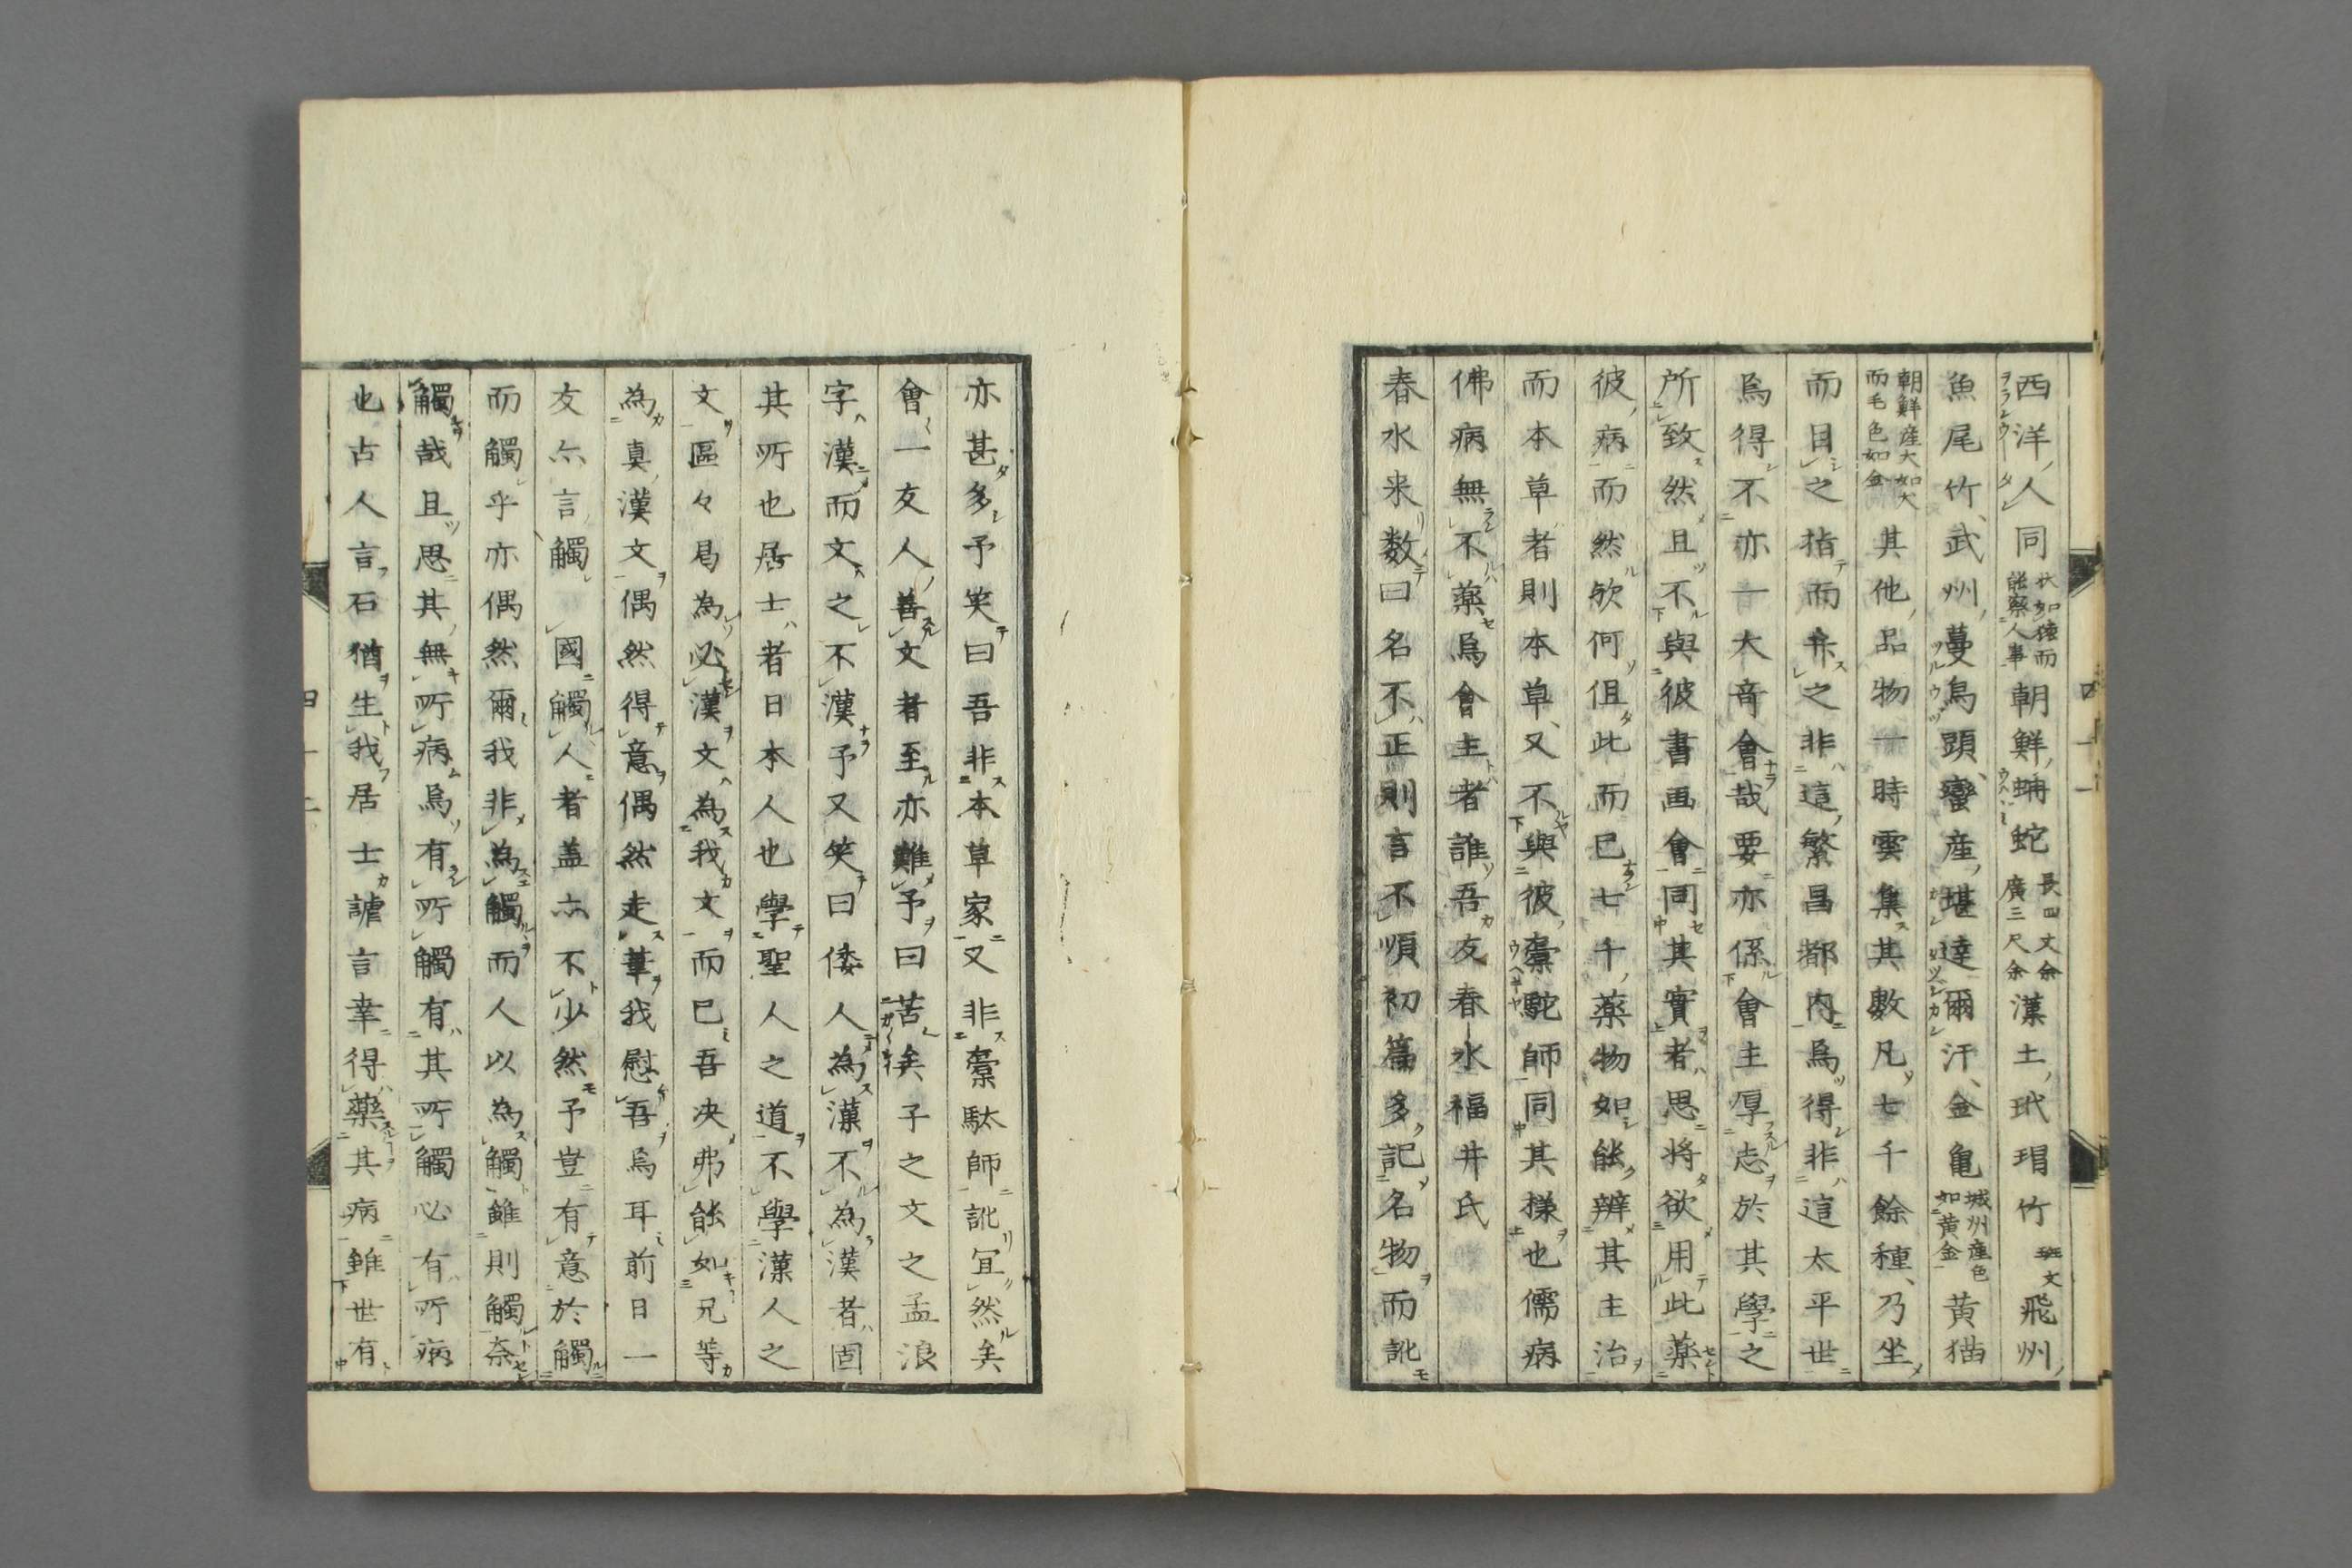 西洋人同状如猿而能察人事朝鮮蚺蛇長四丈余廣三尺余漢土玳瑁竹斑文飛州
魚尾竹武州蔓烏頭蠻産堪達爾汗金亀城州産色如黄金黄猫
朝鮮産大如犬而毛色如金其他品物一時雲集其數凡七千餘種乃坐
而目之指而弁之非這繁昌都内烏得非這太平世
烏得不亦一大奇會哉要亦係會主厚志於其學之
所致然且不與彼書画會同其實者思将欲用此薬
彼病而然欤何但此而已七千薬物如能辨其主治
而本草者則本草又不與彼槖駝師同其様也儒病
佛病無不薬烏會主者誰吾友春水福井氏
春水来数曰名不正則言不順初篇多記名物而訛
亦甚多予笑曰吾非本草家又非槖駄師訛冝然矣
會一友人善文者至亦難予曰苦矣子之文之孟浪
字漢而文之不漢予又笑曰倭人為漢不為漢者固
其所也居士者日本人也學聖人之道不學漢人之
文區々曷為必漢文為我文而已吾决弗能如兄等
為真漢文偶然得意偶然走筆我慰吾烏耳前日一
友亦言觸國觸人者盖亦不少然予豈有意於觸
而觸乎亦偶然爾我非為觸而人以為觸雖則觸奈
觸哉且思其無所病烏有所觸有其所觸必有所病
也古人言石猶生我居士謔言幸得薬其病雖世有
四十二